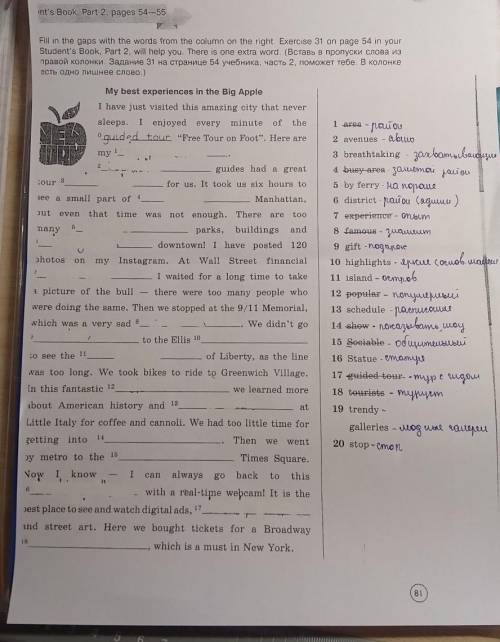 nt's Book, Part 2, pages 54—55
Fill in the gaps with the words from the column on the right. Exercise 31 on page 54 in your
Student's Book, Part 2, will help you. There is one extra word. (Вставь в пропуски слова из
правой колонки. Задание 31 на странице 54 учебника, часть 2, поможет тебе. В колонке
есть одно лишнее слово.)
My best experiences in the Big Apple
NEW YORK
I have just visited this amazing city that never
sleeps. I enjoyed every minute of the
0 guided tour "Free Tour on Foot". Here are
my 1
2 guides had a great
tour 3 for us. It took us six hours to
see a small part of 4 Manhattan,
but even that time was not enough. There are too
many 5 parks, buildings and
downtown! I have posted 120
photos on my Instagram. At Wall Street financial
7 I waited for a long time to take
a picture of the bull — there were too many people who
were doing the same. Then we stopped at the 9/11 Memorial,
which was a very sad 8 . We didn't go
to the Ellis 10
to see the 11 of Liberty, as the line
was too long. We took bikes to ride to Greenwich Village.
In this fantastic 12 we learned more
about American history and 13 at
Little Italy for coffee and cannoli. We had too little time for
getting into 14 . Then we went
by metro to the 15 Times Square.
Now I know — I can always go back to this
6 with a real-time webcam! It is the
best place to see and watch digital ads, 17
and street art. Here we bought tickets for a Broadway
18 , which is a must in New York.
1 area - район
2 avenues - авню
3 breathtaking - захватывающие
4 busy area - район
5 by ferry - на пароме
6 district - район
7 experience - опыт
8 famous - знаменит
9 gift - подарок
10 highlights - яркие
11 island - остров
12 popular - популярный
13 schedule - расписание
14 show - показывать, шоу
15 Sociable - общительный
16 Statue - статуя
17 guided tour - тур с гидом
18 tourists - турист
19 trendy -
galleries - модные галереи
20 stop - стоп
81